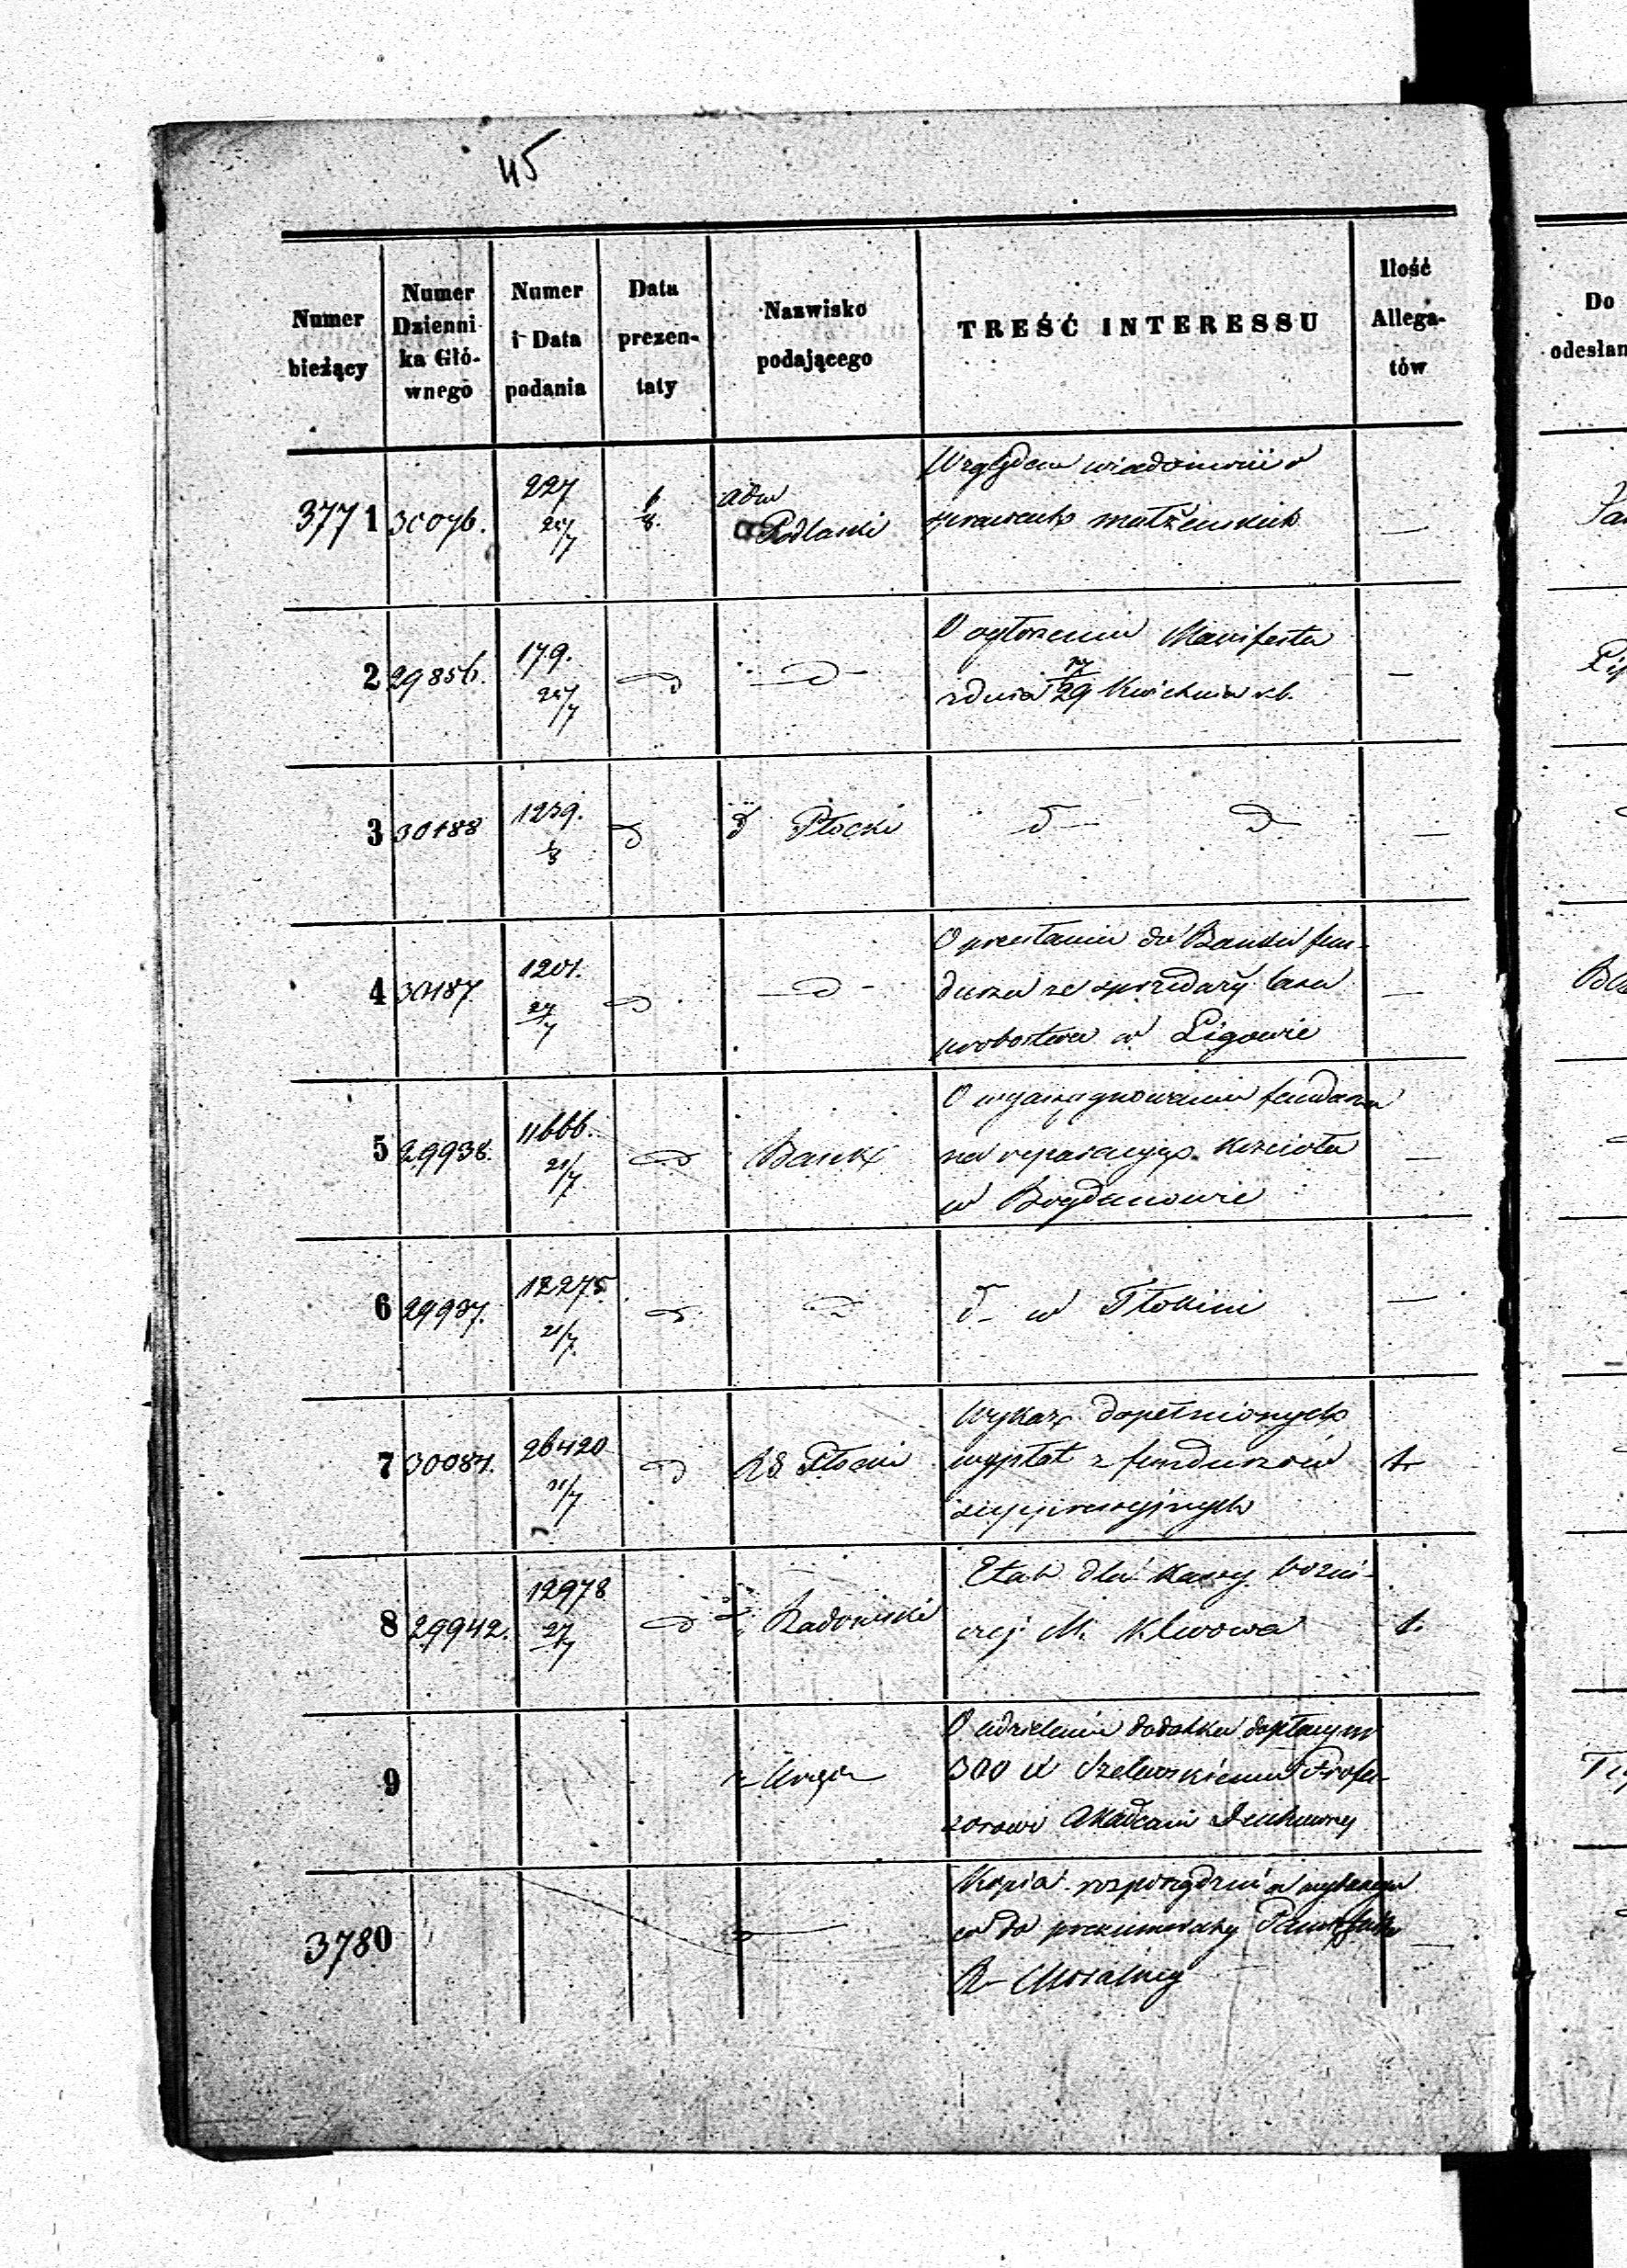 45
Numer bieżący
Numer Dzienni ka Głó- wnego
Numer i Data podania
Data prezen- taty
Nazwisko podającego
TREŚĆ INTERESSU
Ilość Allega- tów
Do odesłan
3771 30076. 227 25/7 1/8. Adm Podlaski
Względem wiadomości o
sprawach małżeńskich —
2 29856. 179. 25/7 d d
O ogłoszeniu Manifestu
z dnia 17/29 Kwietnia rb. —
3 30188 1259. 1/8 d d Płocki d d —
4 30187 1201. 27/7 d d
O przesłaniu do Banku fun-
duszu ze sprzedaży lasu
probostwa w Ligowie —
5 29938. 11666. 21/7 d Bank
O wyasygnowaniu funduszu
na reparacyę Kościoła
w Bogdanowie —
6 29937. 12275 21/7 d d
d w Tłokini —
7 30084. 26420 21/7 d RG Płocki
Wykaz dopełnionych
wypłat z funduszów 1.
suppressyjnych
8 29942. 12978 27/7 d Radomski
Etat dla Kassy bożni-
czej M. Klwowa 1.
9 z Urzędu
O udzieleniu dodatku do płacy
300 Szelewskiemu Profes-
sorowi Akademii Duchownej
3780
Kopia rozporządzenia
co do prenumeraty Pamiętnika
R. Moralnej —